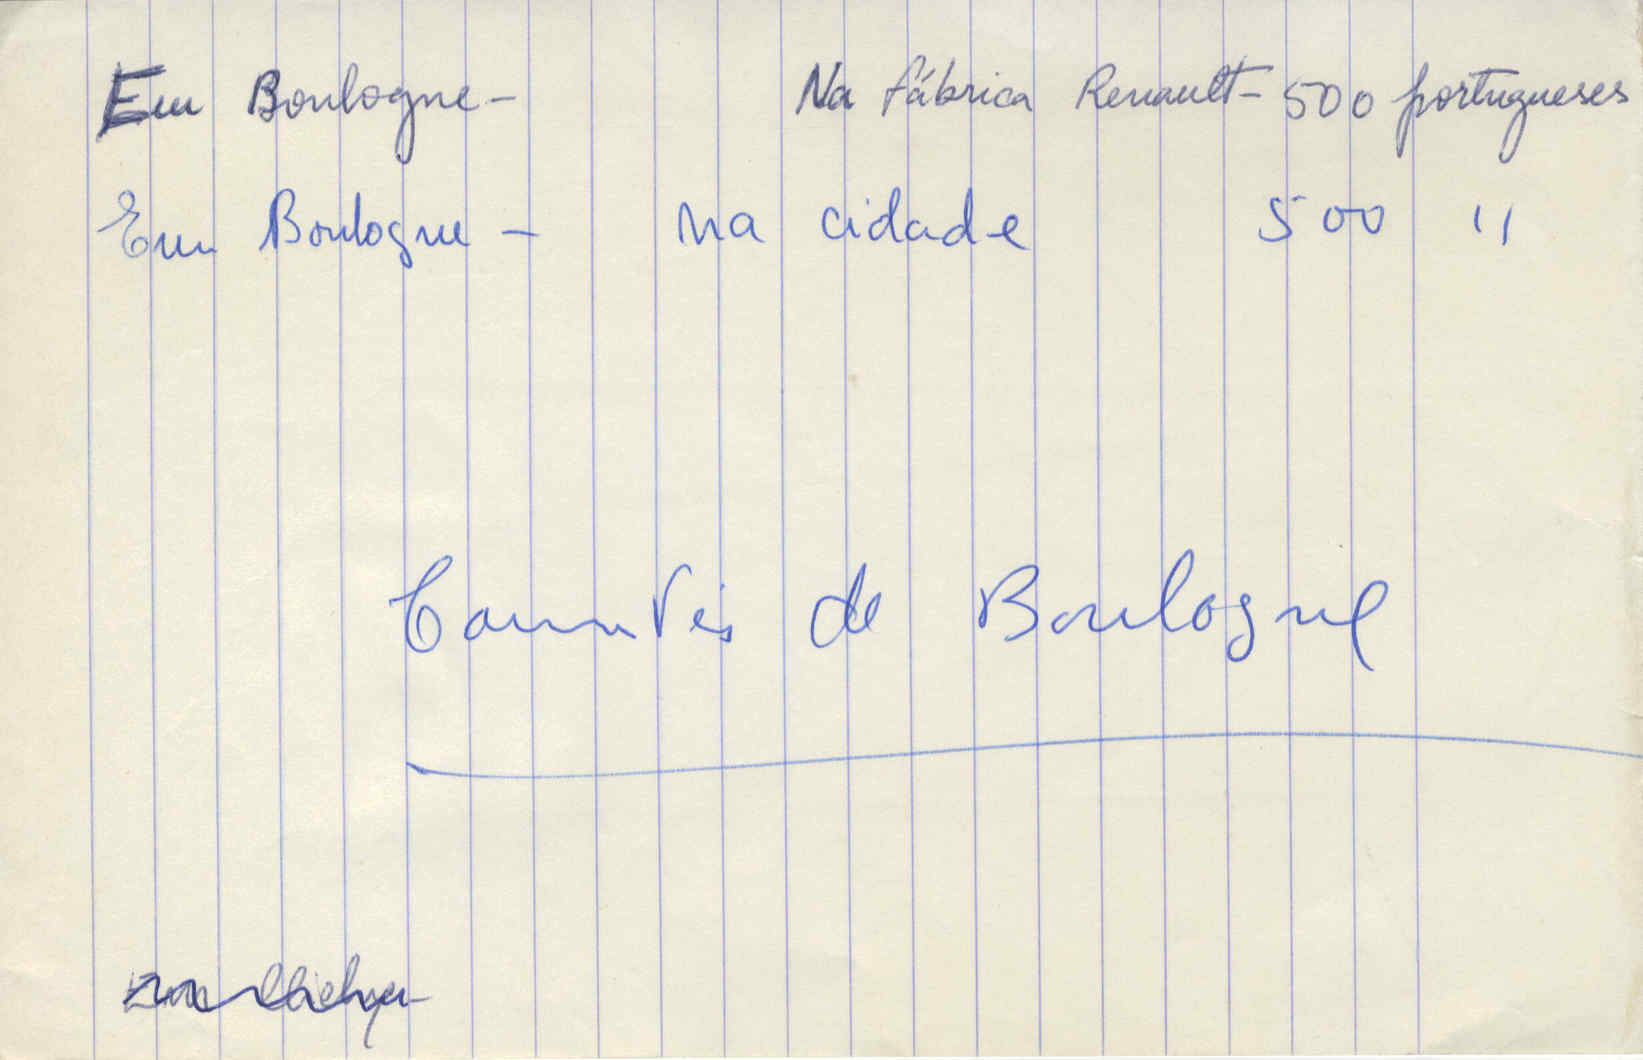 Em Boulogne - Na fábrica Renault - 500 portugueses
Em Boulogne - na cidade 500 "
de Boulogne